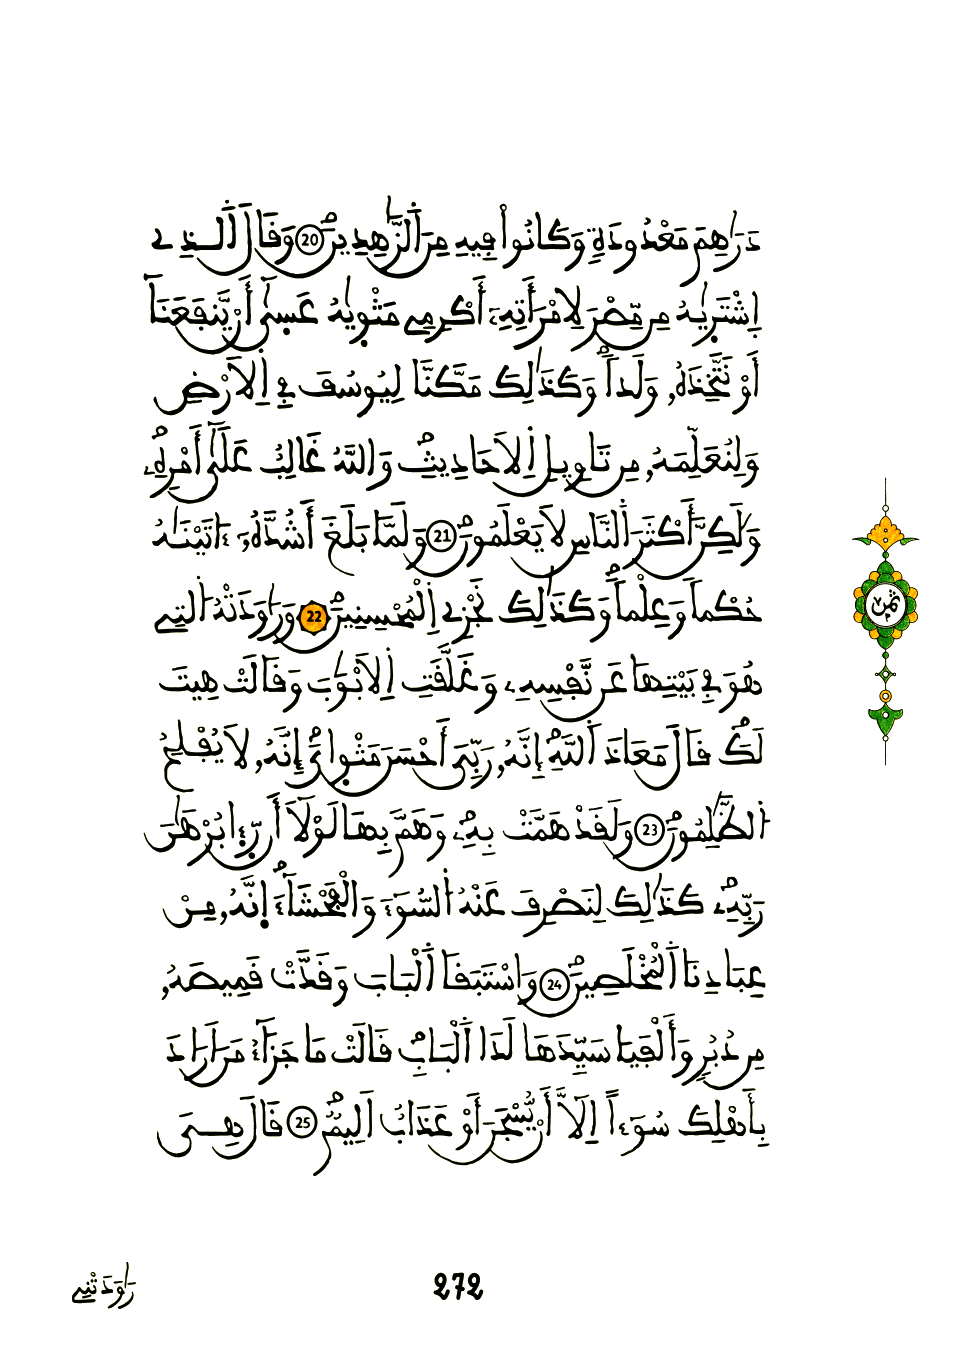 دَرَٰهِمَ مَعْدُودَةٖ وَكَانُواْ فِيهِ مِنَ اَ۬لزَّٰهِدِينَۖ 20 وَقَالَ اَ۬لذِے
اِ۪شْتَر۪يٰهُ مِن مِّصْرَ لِامْرَأَتِهِۦٓ أَكْرِمِے مَثْو۪يٰهُ عَس۪يٰٓ أَنْ يَّنفَعَنَآ
أَوْ نَتَّخِذَهُۥ وَلَداٗۖ وَكَذَٰلِكَ مَكَّنَّا لِيُوسُفَ فِے اِ۬لَارْضِ
وَلِنُعَلِّمَهُۥ مِن تَاوِيلِ اِ۬لَاحَادِيثِۖ وَاللَّهُ غَالِبٌ عَلَيٰٓ أَمْرِهِۦۖ
وَلَٰكِنَّ أَكْثَرَ اَ۬لنَّاسِ لَا يَعْلَمُونَۖ 21 وَلَمَّا بَلَغَ أَشُدَّهُۥٓ ءَاتَيْنَٰهُ
حُكْماٗ وَعِلْماٗۖ وَكَذَٰلِكَ نَجْزِے اِ۬لْمُحْسِنِينَۖ 22 وَرَٰوَدَتْهُ اُ۬لتِے
هُوَ فِے بَيْتِهَا عَن نَّفْسِهِۦ وَغَلَّقَتِ اِ۬لَابْوَٰبَ وَقَالَتْ هِيتَ
لَكَۖ قَالَ مَعَاذَ اَ۬للَّهِۖ إِنَّهُۥ رَبِّيَ أَحْسَنَ مَثْوَايَۖ إِنَّهُۥ لَا يُفْلِحُ
اُ۬لظَّٰلِمُونَۖ 23 وَلَقَدْ هَمَّتْ بِهِۦۖ وَهَمَّ بِهَا لَوْلَآ أَن رّ۪ء۪ا بُرْهَٰنَ
رَبِّهِۦۖ كَذَٰلِكَ لِنَصْرِفَ عَنْهُ اُ۬لسُّوٓءَ وَالْفَحْشَآءَۖ اِ۪نَّهُۥ مِنْ
عِبَادِنَا اَ۬لْمُخْلَصِينَۖ 24 وَاسْتَبَقَا اَ۬لْبَابَ وَقَدَّتْ قَمِيصَهُۥ
مِن دُبُرٖ وَأَلْفَيَا سَيِّدَهَا لَدَا اَ۬لْبَابِۖ قَالَتْ مَا جَزَآءُ مَنَ اَرَادَ
بِأَهْلِكَ سُوٓءاً اِلَّآ أَنْ يُّسْجَنَ أَوْ عَذَابٌ اَلِيمٞۖ 25 قَالَ هِيَ
ثمن
رَٰوَدَتْنِے
272